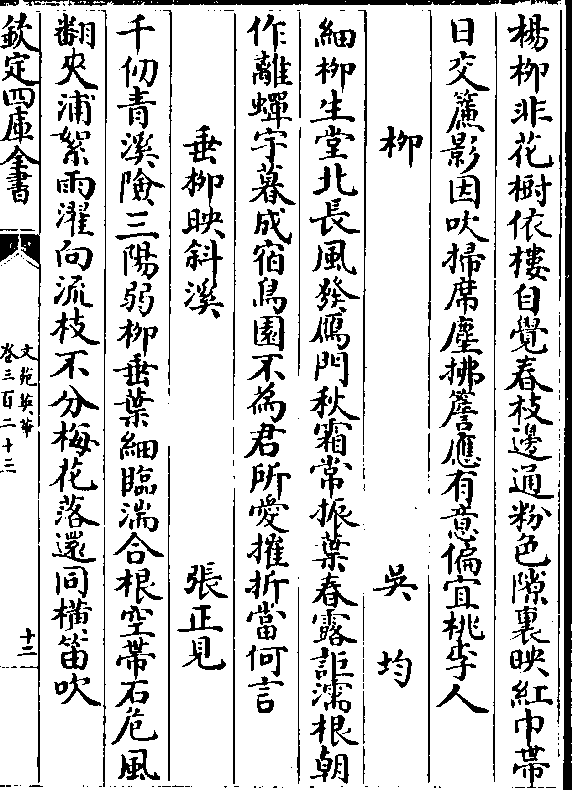 楊栁非花樹依樓自覺春枝邊通粉色隙裏映紅巾帶
日交簾影因吹掃席塵拂簷應有意偏宜桃李人
栁　吳均
細栁生堂北長風發鴈門秋霜常振葉春露詎濡根朝
作離蟬宇暮成宿鳥園不為君所愛摧折當何言
垂栁映斜溪　張正見
千仞青溪險三陽弱栁垂葉細臨湍合根空帶石危風
翻夾浦絮雨濯向流枝不分梅花落還同橫笛吹
欽定四庫全書
文苑英華
卷三百二十三
十二